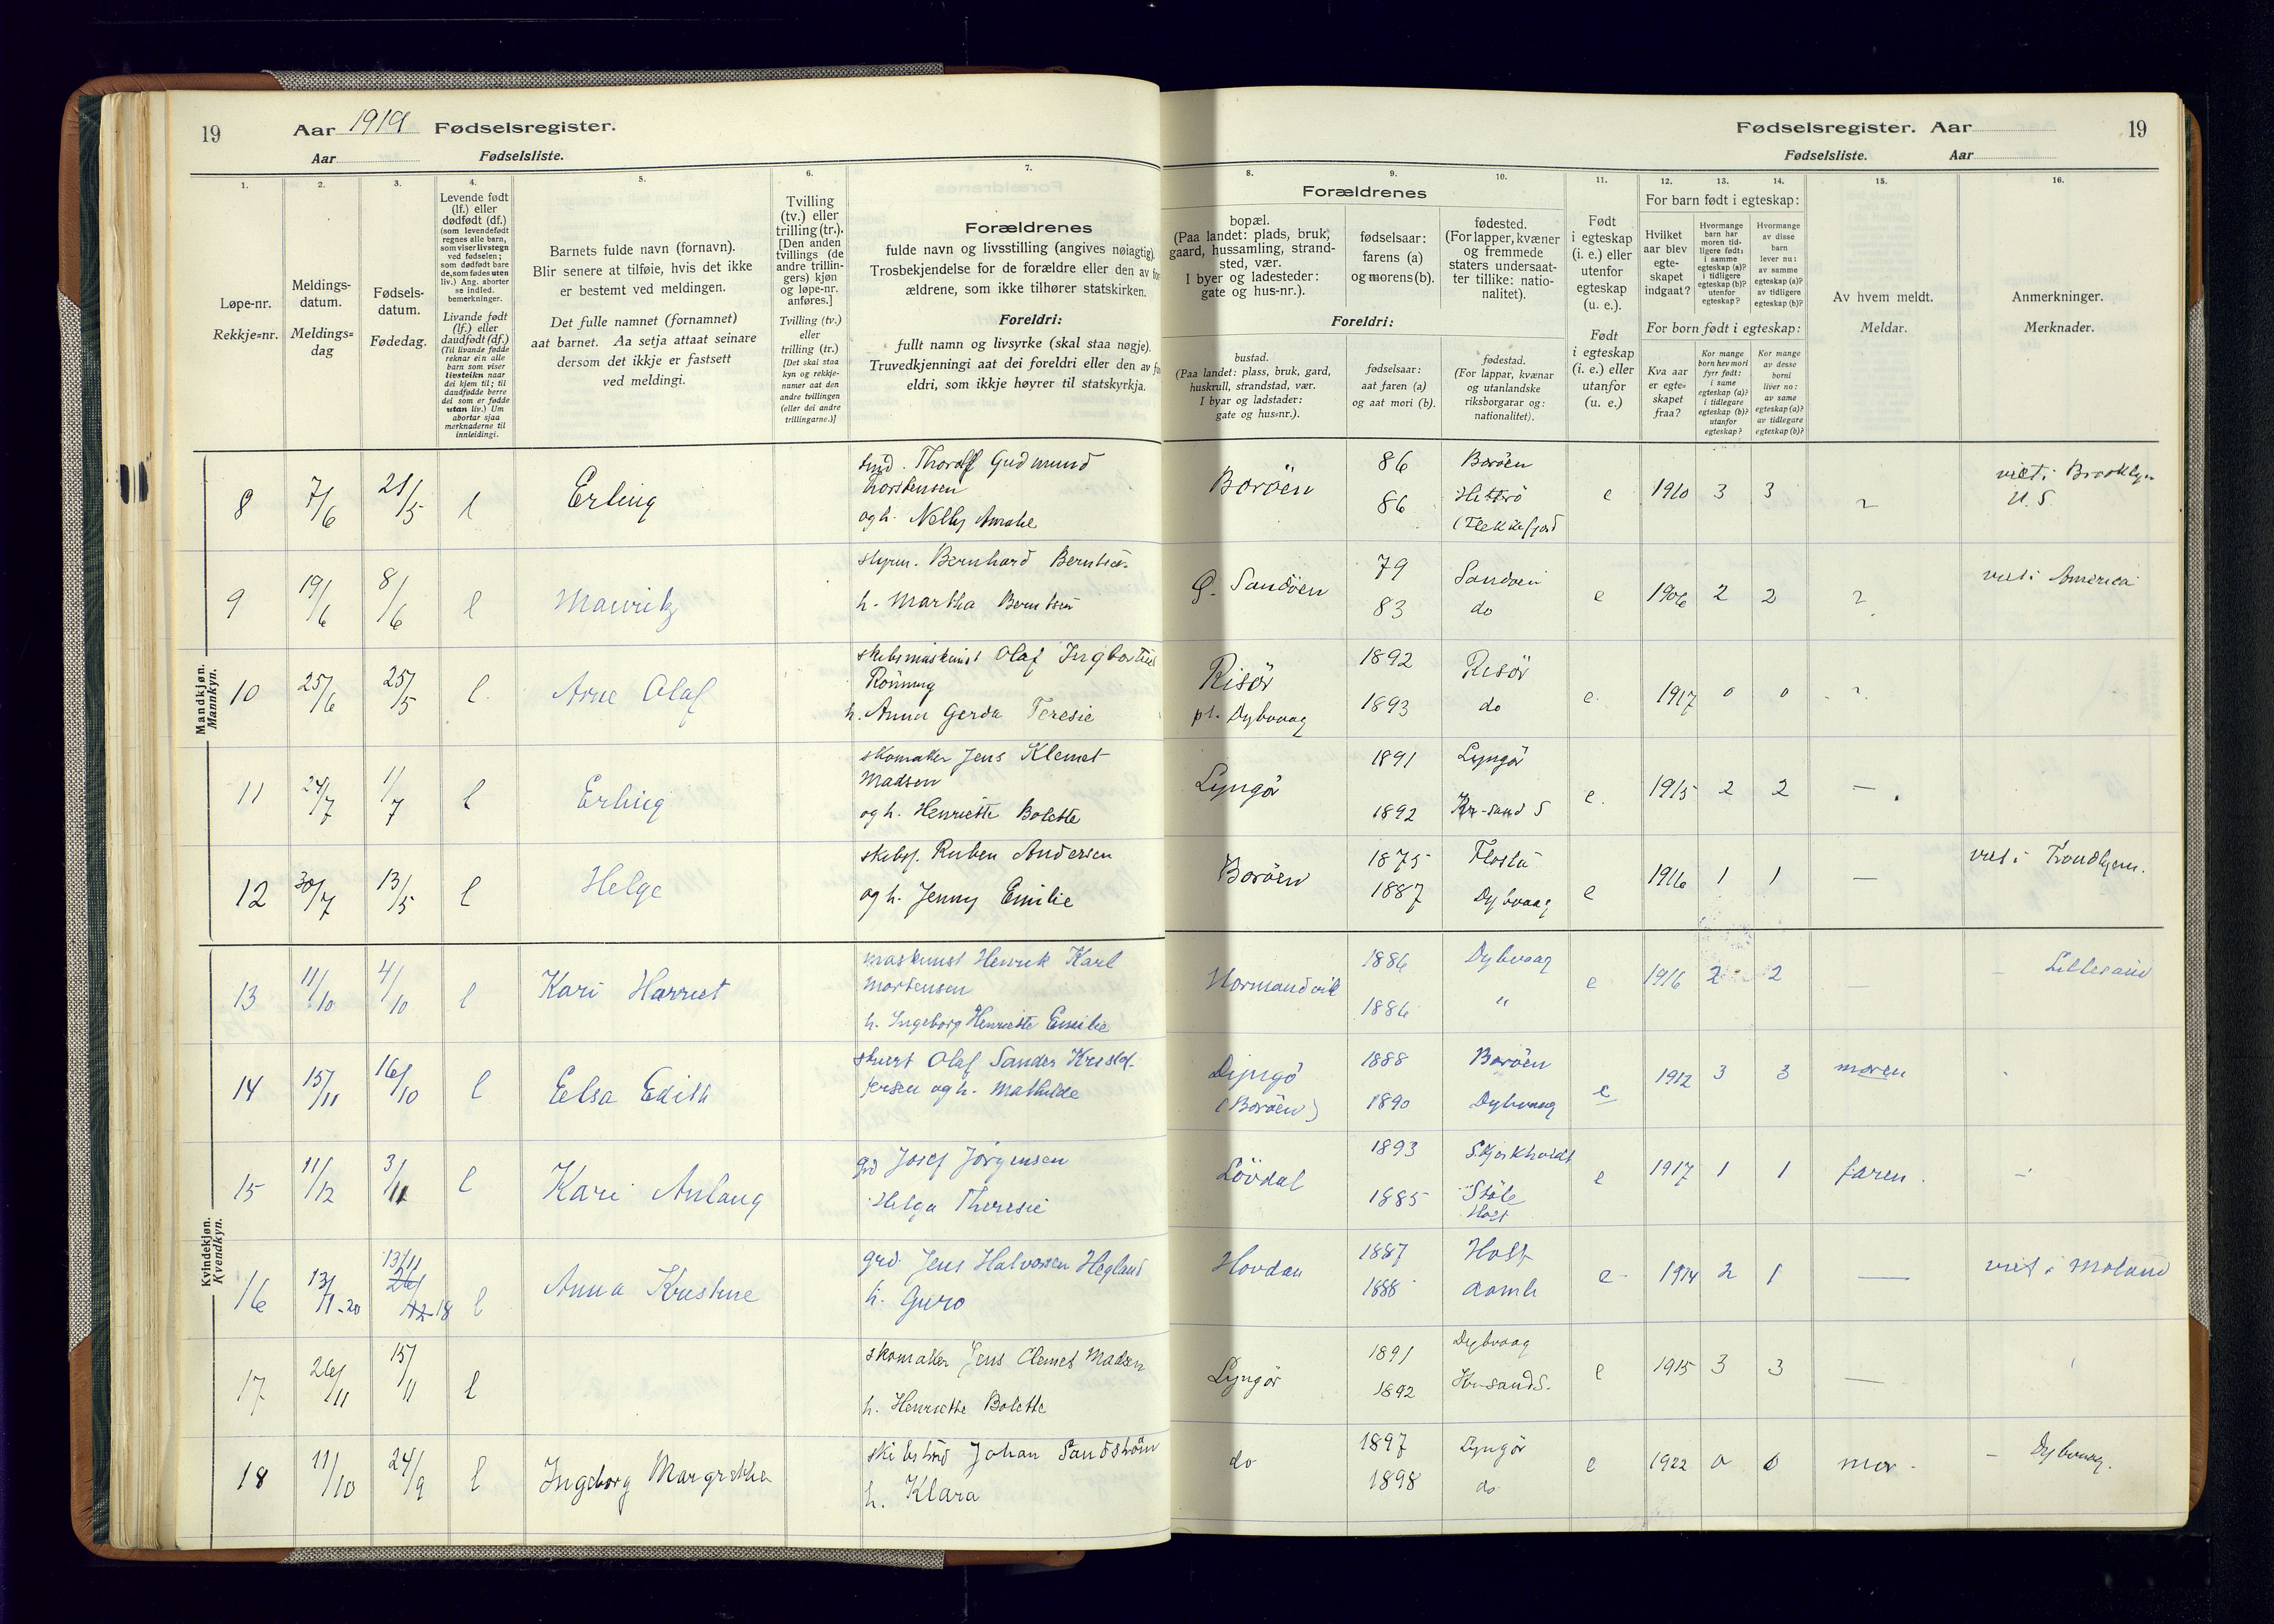 19 Aar 1919 Fødselsregister.
Aar Fødselsliste.
Fødselsregister. Aar 19
Fødselsliste. Aar
1. 2. 3. 4. 5. 6. 7. 8. 9. 10. 11. 12. 13. 14. 15. 16.
Løpe-nr.
Rekkje=nr.
Meldings-
datum.
Meldings=
dag
Fødsels-
datum.
Fødedag.
Levende født
(lf.) eller
dødfødt (df.)
(som levendefødt
regnes alle barn,
som viser livstegn
ved fødselen;
som dødfødt bare
de, som fødes uten
liv.) Ang. aborter
se indled.
bemerkninger.
Livande født
(lf.) eller
daudfødt (df.)
(Til livande fødde
reknar ein alle
barn som viser
livsteikn naar
dei kjem til; til
daudfødde berre
dei som er fødde
utan liv.) Um
abortar sjaa
merknaderne til
innleidingi.
Barnets fulde navn (fornavn).
Blir senere at tilføie, hvis det ikke
er bestemt ved meldingen.
Det fulle namnet (fornamnet)
aat barnet. Aa setja attaat seinare
dersom det ikkje er fastsett
ved meldingi.
Tvilling
(tv.) eller
trilling (tr.).
[Den anden
tvillings (de
andre trillin-
gers) kjøn
og løpe-nr.
anføres.]
Tvilling (tv.)
eller
trilling (tr.)
[Det skal staa
kyn og rekkje-
numer aat den
andre tvillingen
(eller dei andre
trillingarne.)]
Forældrenes
fulde navn og livsstilling (angives nøiagtig).
Trosbekjendelse for de forældre eller den av for
ældrene, som ikke tilhører statskirken.
Foreldri:
fullt namn og livsyrke (skal staa nøgje).
Truvedkjenningi aat dei foreldri eller den av
eldri, som ikkje høyrer til statskyrkja.
Forældrenes
bopæl.
(Paa landet: plads, bruk,
gaard, hussamling, strand-
sted, vær.
I byer og ladesteder:
gate og hus-nr.).
fødselsaar:
farens (a)
og morens (b).
fødested.
(For lapper, kvæner
og fremmede
staters undersaat-
ter tillike: natio-
nalitet).
Foreldri:
bustad.
(Paa landet: plass, bruk, gard,
huskrull, strandstad, vær.
I byar og ladstader:
gate og hus=nr.).
fødselsaar:
aat faren (a)
og aat mori (b).
fødestad.
(For lappar, kvænar
og utanlandske
riksborgarar og:
nationalitet).
Født
i egteskap
(i. e.) eller
utenfor
egteskap
(u. e.).
Født
i egteskap
(i. e.) eller
utanfor
(u. e.)
For barn født i egteskap:
Hvilket
aar blev
egte-
skapet
indgaat?
Hvormange
barn har
moren tid-
ligere født:
i samme
egteskap (a)?
i tidligere
egteskap (b)?
utenfor
egteskap?
Hvormange
av disse
barn
lever nu:
av samme
egteskap (a)?
av tidligere
egteskap (b)?
For born født i egteskap:
Kva aar
er egte-
skapet
fraa?
Kor mange
born hev mori
fyrr født:
i same
egteskap (a)?
i tidlegare
egteskap (b)?
utanfor
egteskap?
Kor mange
av desse
borni
liver no:
av same
egteskap (a)?
av tidlegare
egteskap (b)?
Av hvem meldt.
Meldar.
Anmerkninger.
Merknader.
Mandkjøn.
Mannkyn.
8 7/6 21/5 l Erling
smd. Thorolf Gudmund
Torstensen
og h. Nelly Amalie
Borøen 86 Borøen
86 Hitterø
(Flekkefjord
e 1910 3 3
viet i Brooklyn
U. S.
9 19/6 8/6 l Mauritz
styrm. Bernhard Berntsen
h. Martha Berntsen
Ø. Sandøen 79 Sandøen
83 do
e 1906 2 2
viet i America
10 25/6 25/5 l Arne Olaf
skibsmaskinist Olaf
Rønning
h. Anna Gerda Teresie
Risør
pt. Dybvaag
1892 Risør
1893 do
e. 1917 0 0
11 24/7 1/7 l Erling
skomaker Jens Klemet
Madsen
og h. Henriette Bolette
Lyngør 1891 Lyngør
1892 Kr-sand S
e. 1915 2 2 —
12 30/7 13/5 l Helge
skibsf. Ruben Andersen
og h. Jenny Emilie
Borøen 1875 Flosta
1887 Dybvaag
e 1916 1 1 —
viet i Trondhjem.
Kvindekjøn.
Kvendkyn.
13 11/10 4/10 l Kari Harriet
maskinist Henrik Karl
Mortensen
h. Ingeborg Henriette Emilie
Normandvik 1886 Dybvaag
1886 "
e 1916 2 2 —
– Lillesand
14 15/11 16/10 l Eelsa Edith
stuert Olaf Sander Kristof-
fersen og h. Mathilde
Dyngø
(Borøen)
1888 Borøen
1890 Dybvaag
e 1912 3 3 moren
15 11/12 3/11 l Kari Anlaug
grd Josef Jørgensen
Helga Theresie
Løvdal 1893
1885 Støle
Holt
e 1917 1 1 faren.
16 13/11-20 13/11 26/12-18 l Anna Kristine
grd. Jens Halvorsen Hegland
h. Guro
Hovdan 1887 Holt
1888 Aamli
e 1914 2 1 —
viet i Moland
17 26/11 15/11 l
skomaker Jens Clemet Madsen
h. Henriette Bolette
Lyngør 1891 Dybvaag
1892 Kr-sand S.
e 1915 3 3 —
18 11/10 24/9 l Ingeborg Margrethe
Johan Sandstrøm
h. Klara
do 1897 Lyngør
1898 do
e 1922 0 0 mor
– Dybvaag.